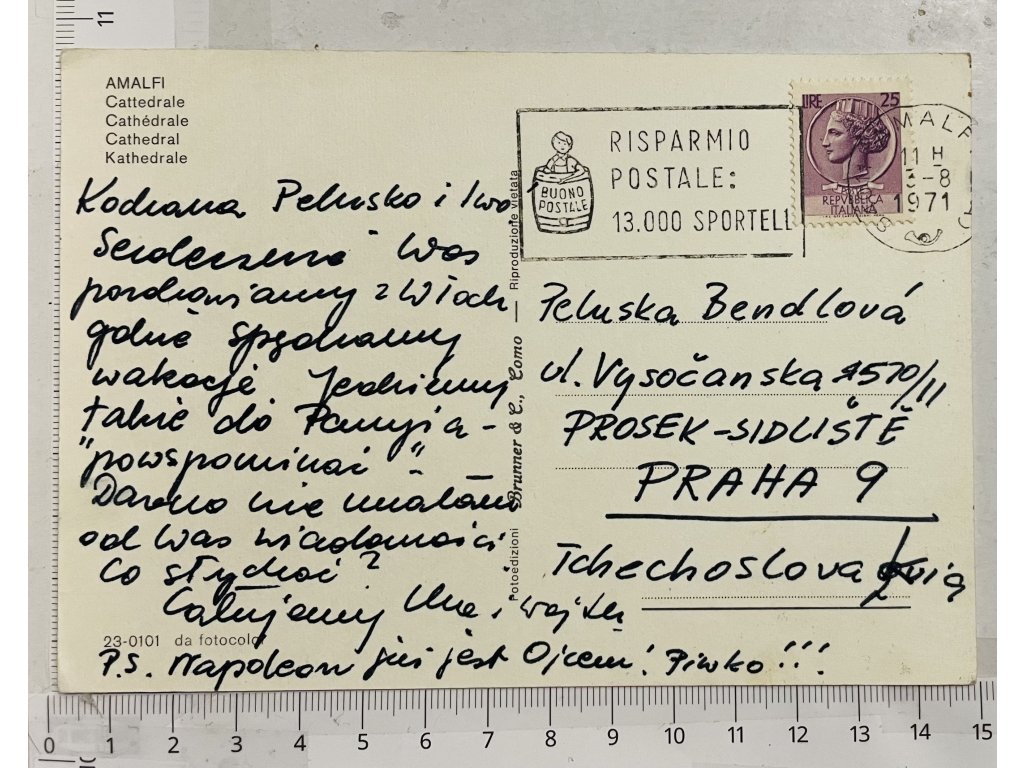 AMALFI
Cattedrale
Cathédrale
Cathedral
Kathedrale
RISPARMIO
POSTALE:
13.000 SPORTELLI
BUONO
POSTALE
LIRE 25
REPVBBLICA
ITALIANA
AMALFI
11 H
-8
1971
Kochana Pelusko i Iwo
Serdecznie Was
pozdrawiamy z Włoch
gdzie spędzamy
wakacje Jedziemy
także do Paryża -
"powspominać".
Dawno nie miałam
od Was wiadomości
Co słychać?
Całujemy i Wojtek
P.S. Napoleon już jest Ojcem! Piwko!!!
23-0101 da fotocolor
Fotoedizioni Brunner & C., Como — Riproduzione vietata
Peluska Bendlová
ul. Vysočanska 570/11
PROSEK-SIDLIŠTĚ
PRAHA 9
Tchechoslovakia
0 1 2 3 4 5 6 7 8 9 10 11 12 13 14 15
11